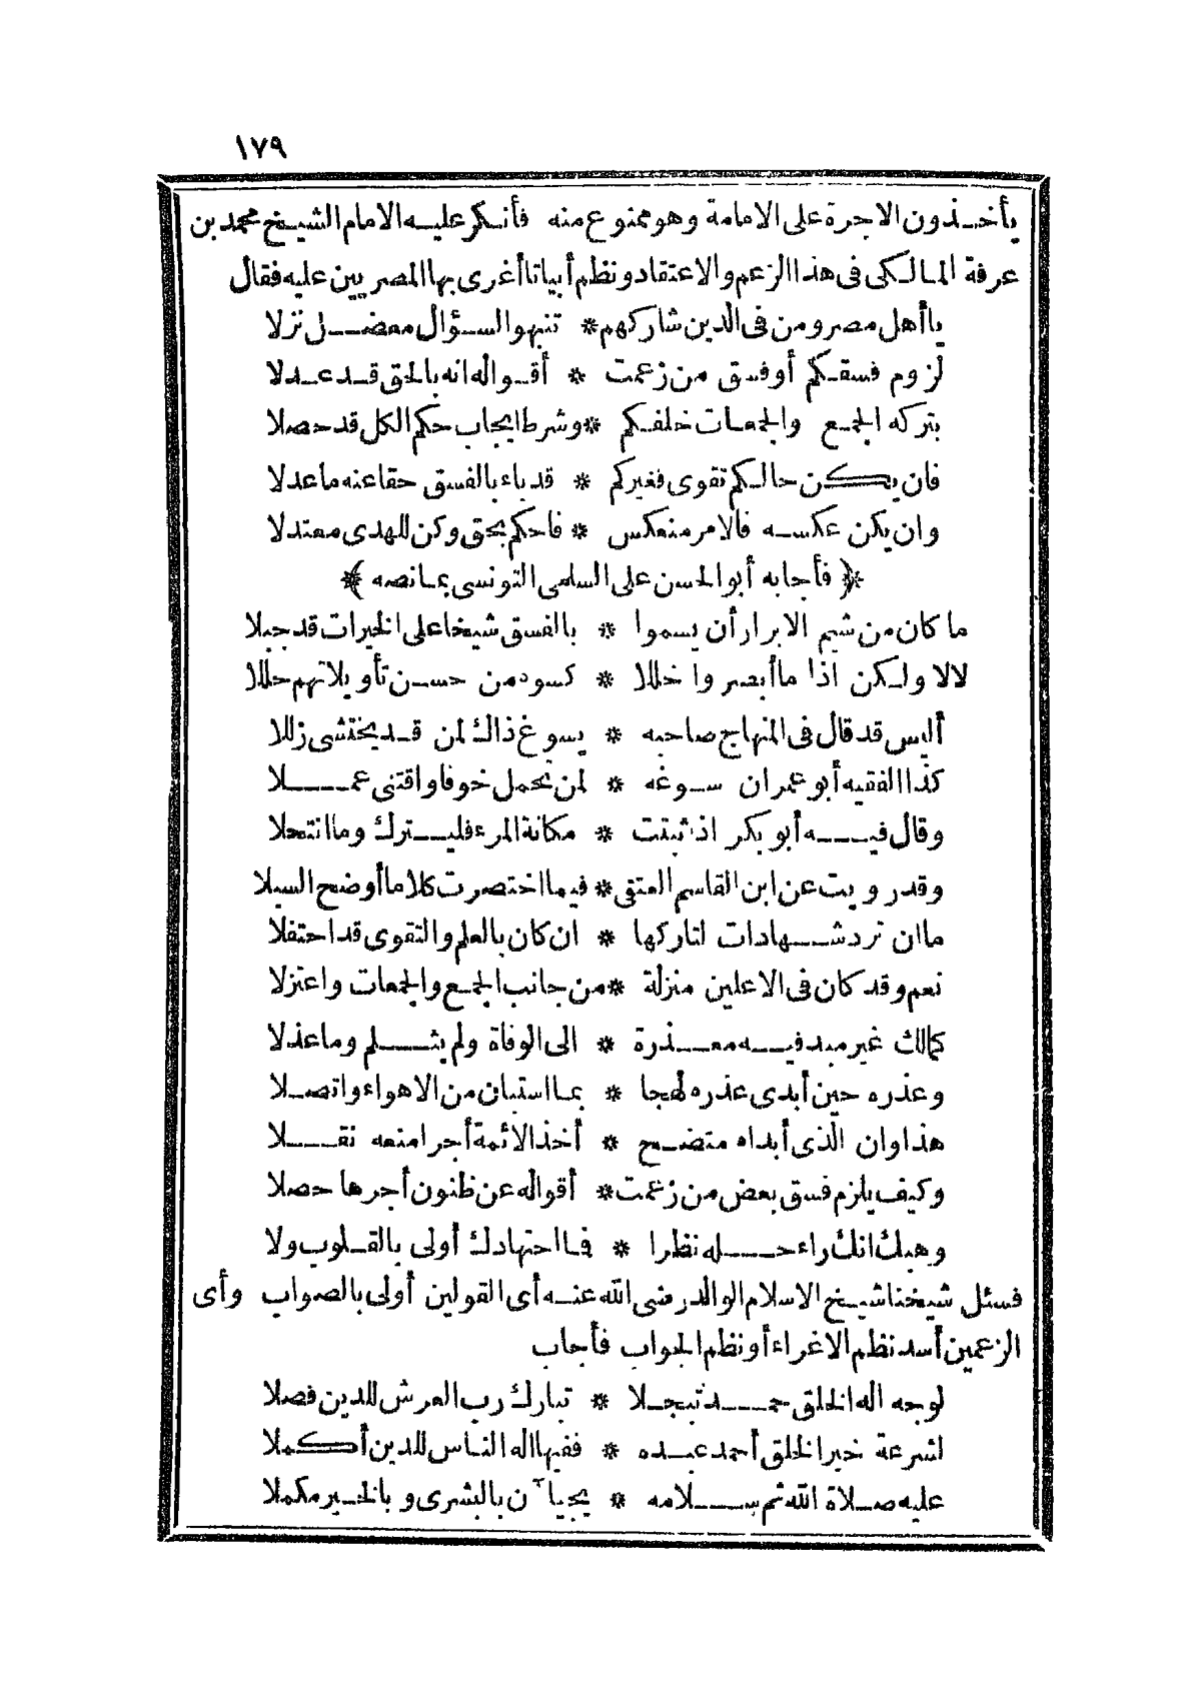 ١٧٩
يأخذون الاجرة على الامامة وهو ممنوع منه فأنكر عليه الامام الشيخ محمد بن
عرفة المالكى فى هذا الزعم والاعتقاد ونظم أبياتا أغرى بها المصريين عليه فقال
يا أهل مصر ومن فى الدين شاركهم * تنبهوا السؤال معضل نزلا
لزوم فسقكم أوفسق من زعمت * أقواله انه بالحق قد عدلا
بتركه الجمع والجمعات خلفكم * وشرط ايجاب حكم الكل قد حصلا
فان يكن حالكم تقوى فغيركم * قد باء بالفسق حقا عنه ما عدلا
وان يكن عكسه فالامر منعكس * فاحكم بحق وكن للهدى معتدلا
﴿ فأجابه أبو الحسن على السلمى التونسى بما نصه ﴾
ما كان من شيم الابرار أن يسموا * بالفسق شيخا على الخيرات قد جبلا
لا لا ولكن اذا ما أبصروا خللا * كسوه من حسن تأويلاتهم حللا
أليس قد قال فى المنهاج صاحبه * يسوغ ذاك لمن قد يختشى زللا
كذا الفقيه أبو عمران سوغه * لمن يحمل خوفا واقتنى عملا
وقال فيه أبو بكر اذ ثبتت * مكانة المرء فليترك وما انتحلا
وقد رويت عن ابن القاسم العتقى * فيما اختصرت كلاما أوضح السبلا
ما ان ترد شهادات لتاركها * ان كان بالعلم والتقوى قد احتفلا
نعم وقد كان فى الاعلين منزلة * من جانب الجمع والجمعات واعتزلا
كمالك غير مبد فيه معذرة * الى الوفاة ولم يثلم وما عذلا
وعذره حين أبدى عذره لهجا * بما استبان من الاهواء واتصلا
هذا وان الذى أبداه متضح * أخذ الائمة أجرا منعه نقلا
وكيف يلزم فسق بعض من زعمت * أقواله عن ظنون أجرها حصلا
وهبك انك راء حله نظرا * فما اجتهادك أولى بالقلوب ولا
فسئل شيخنا شيخ الاسلام الوالد رضى الله عنه أى القولين أولى بالصواب وأى
الزعمين أسد نظم الاغراء أو نظم الجواب فأجاب
لوجه اله الخلق حمد تبجلا * تبارك رب العرش للدين فصلا
لشرعة خير الخلق أحمد عبده * ففيها اله الناس للدين أكملا
عليه صلاة الله ثم سلامه * يجيآن بالبشرى وبالخير مكملا